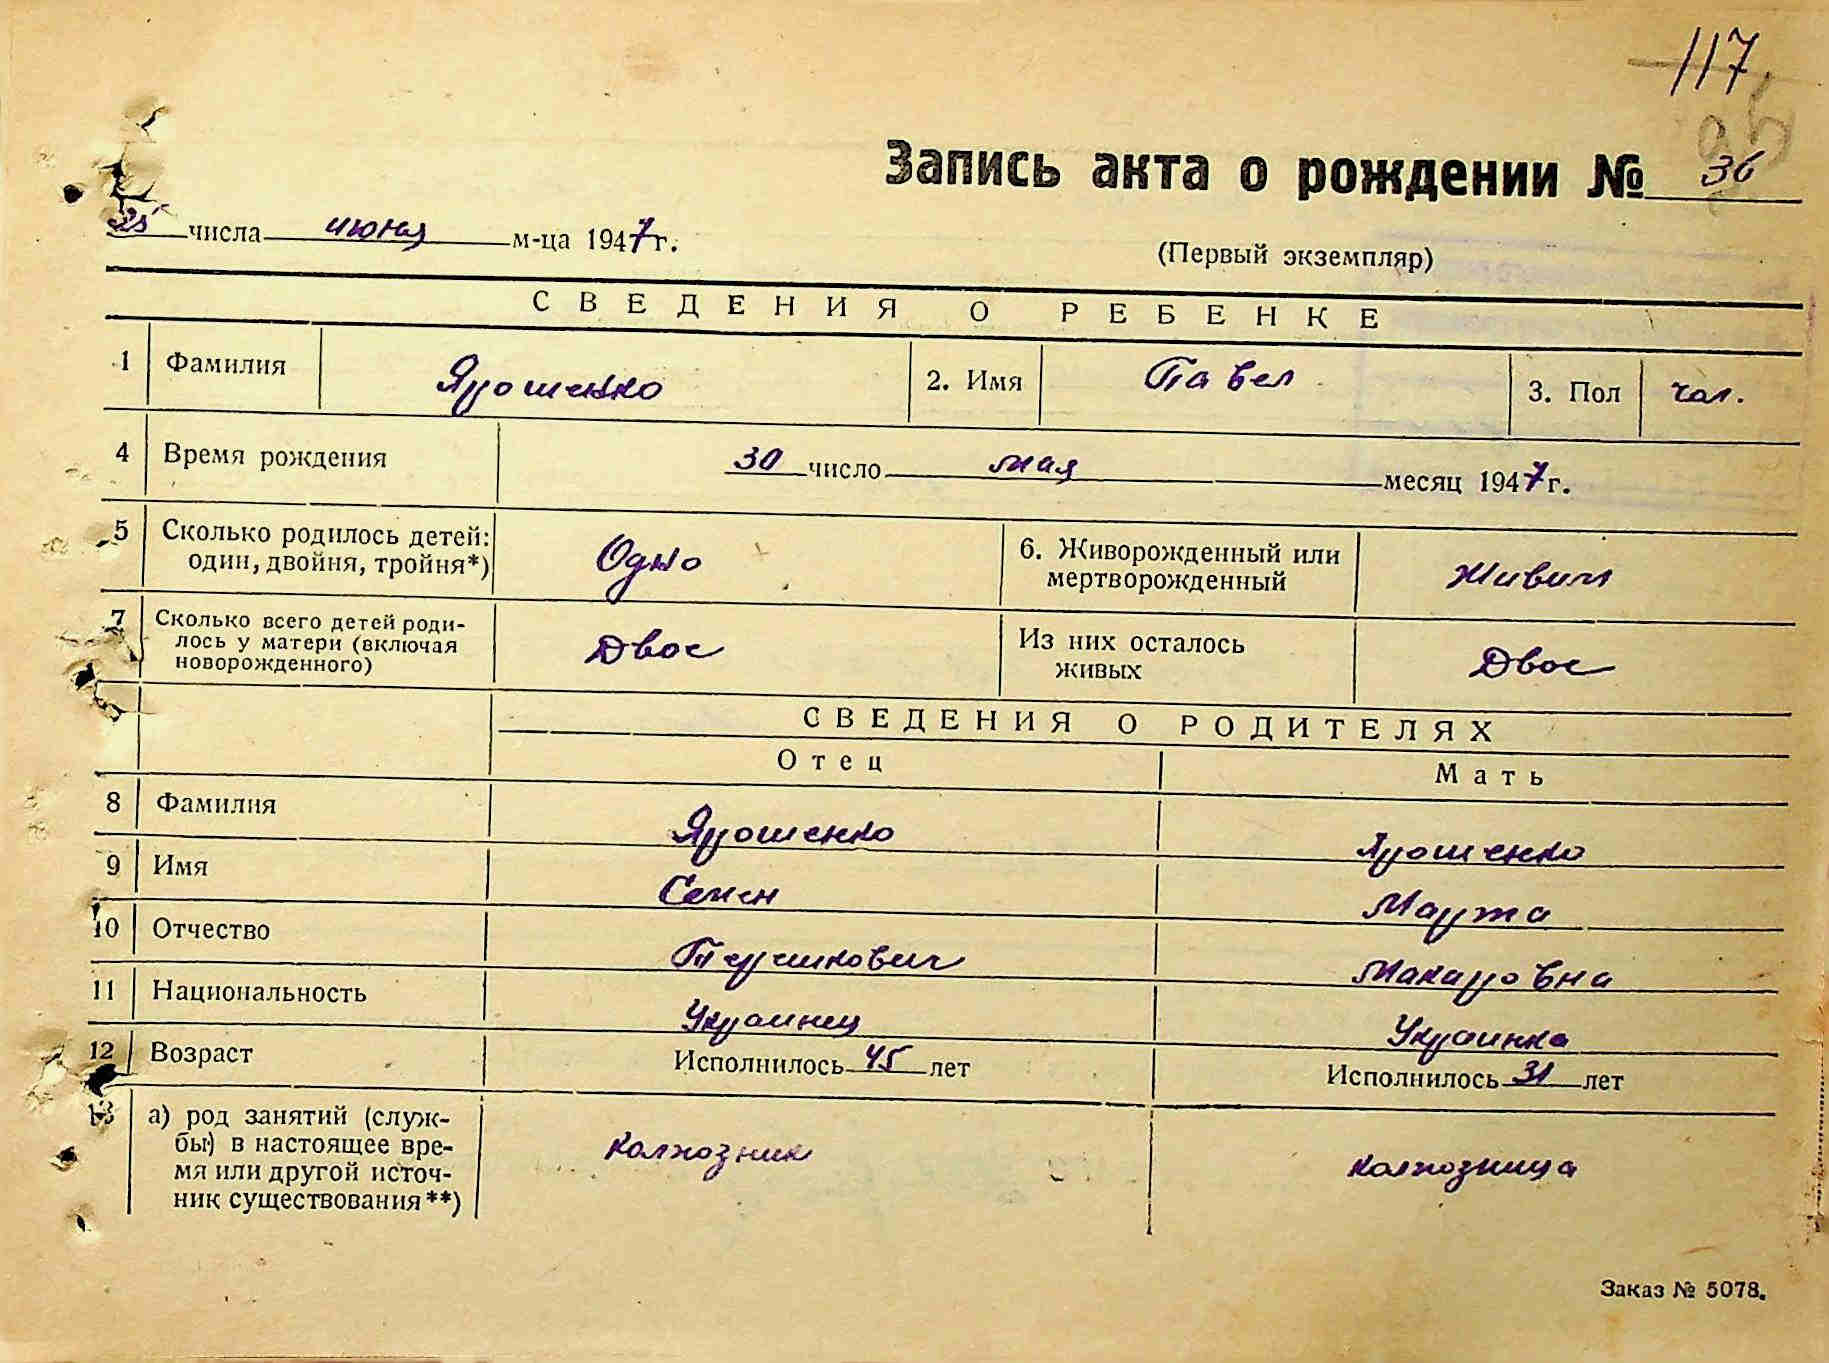 117
95
Запись акта о рождении № 36
25 числа июня м-ца 1947 г.
(Первый экземпляр)
СВЕДЕНИЯ О РЕБЕНКЕ
1 Фамилия Ярошенко 2. Имя Павел 3. Пол чол.
4 Время рождения 30 число мая месяц 1947 г.
5 Сколько родилось детей: один, двойня, тройня*) Одно 6. Живорожденный или мертворожденный Живим
7 Сколько всего детей роди-
лось у матери (включая
новорожденного) Двое Из них осталось живых Двое
СВЕДЕНИЯ О РОДИТЕЛЯХ
Отец Мать
8 Фамилия Ярошенко Ярошенко
9 Имя Семен Марта
10 Отчество Терешкович Макаровна
11 Национальность Украинец Украинка
12 Возраст Исполнилось 45 лет Исполнилось 31 лет
13 а) род занятий (служ-
бы) в настоящее вре-
мя или другой источ-
ник существования**) колхозник колхозница
Заказ № 5078.